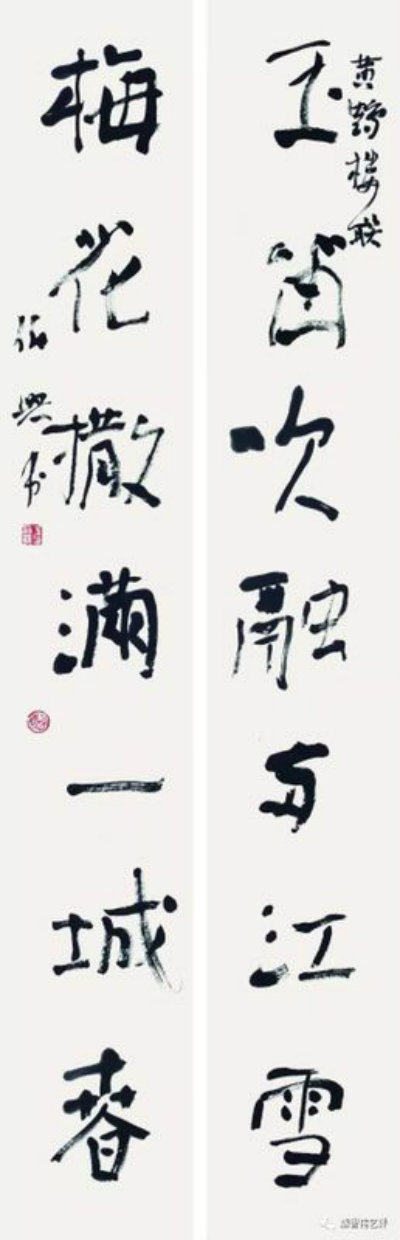 黄鹤楼联
玉笛吹融两江雪
梅花撒满一城春